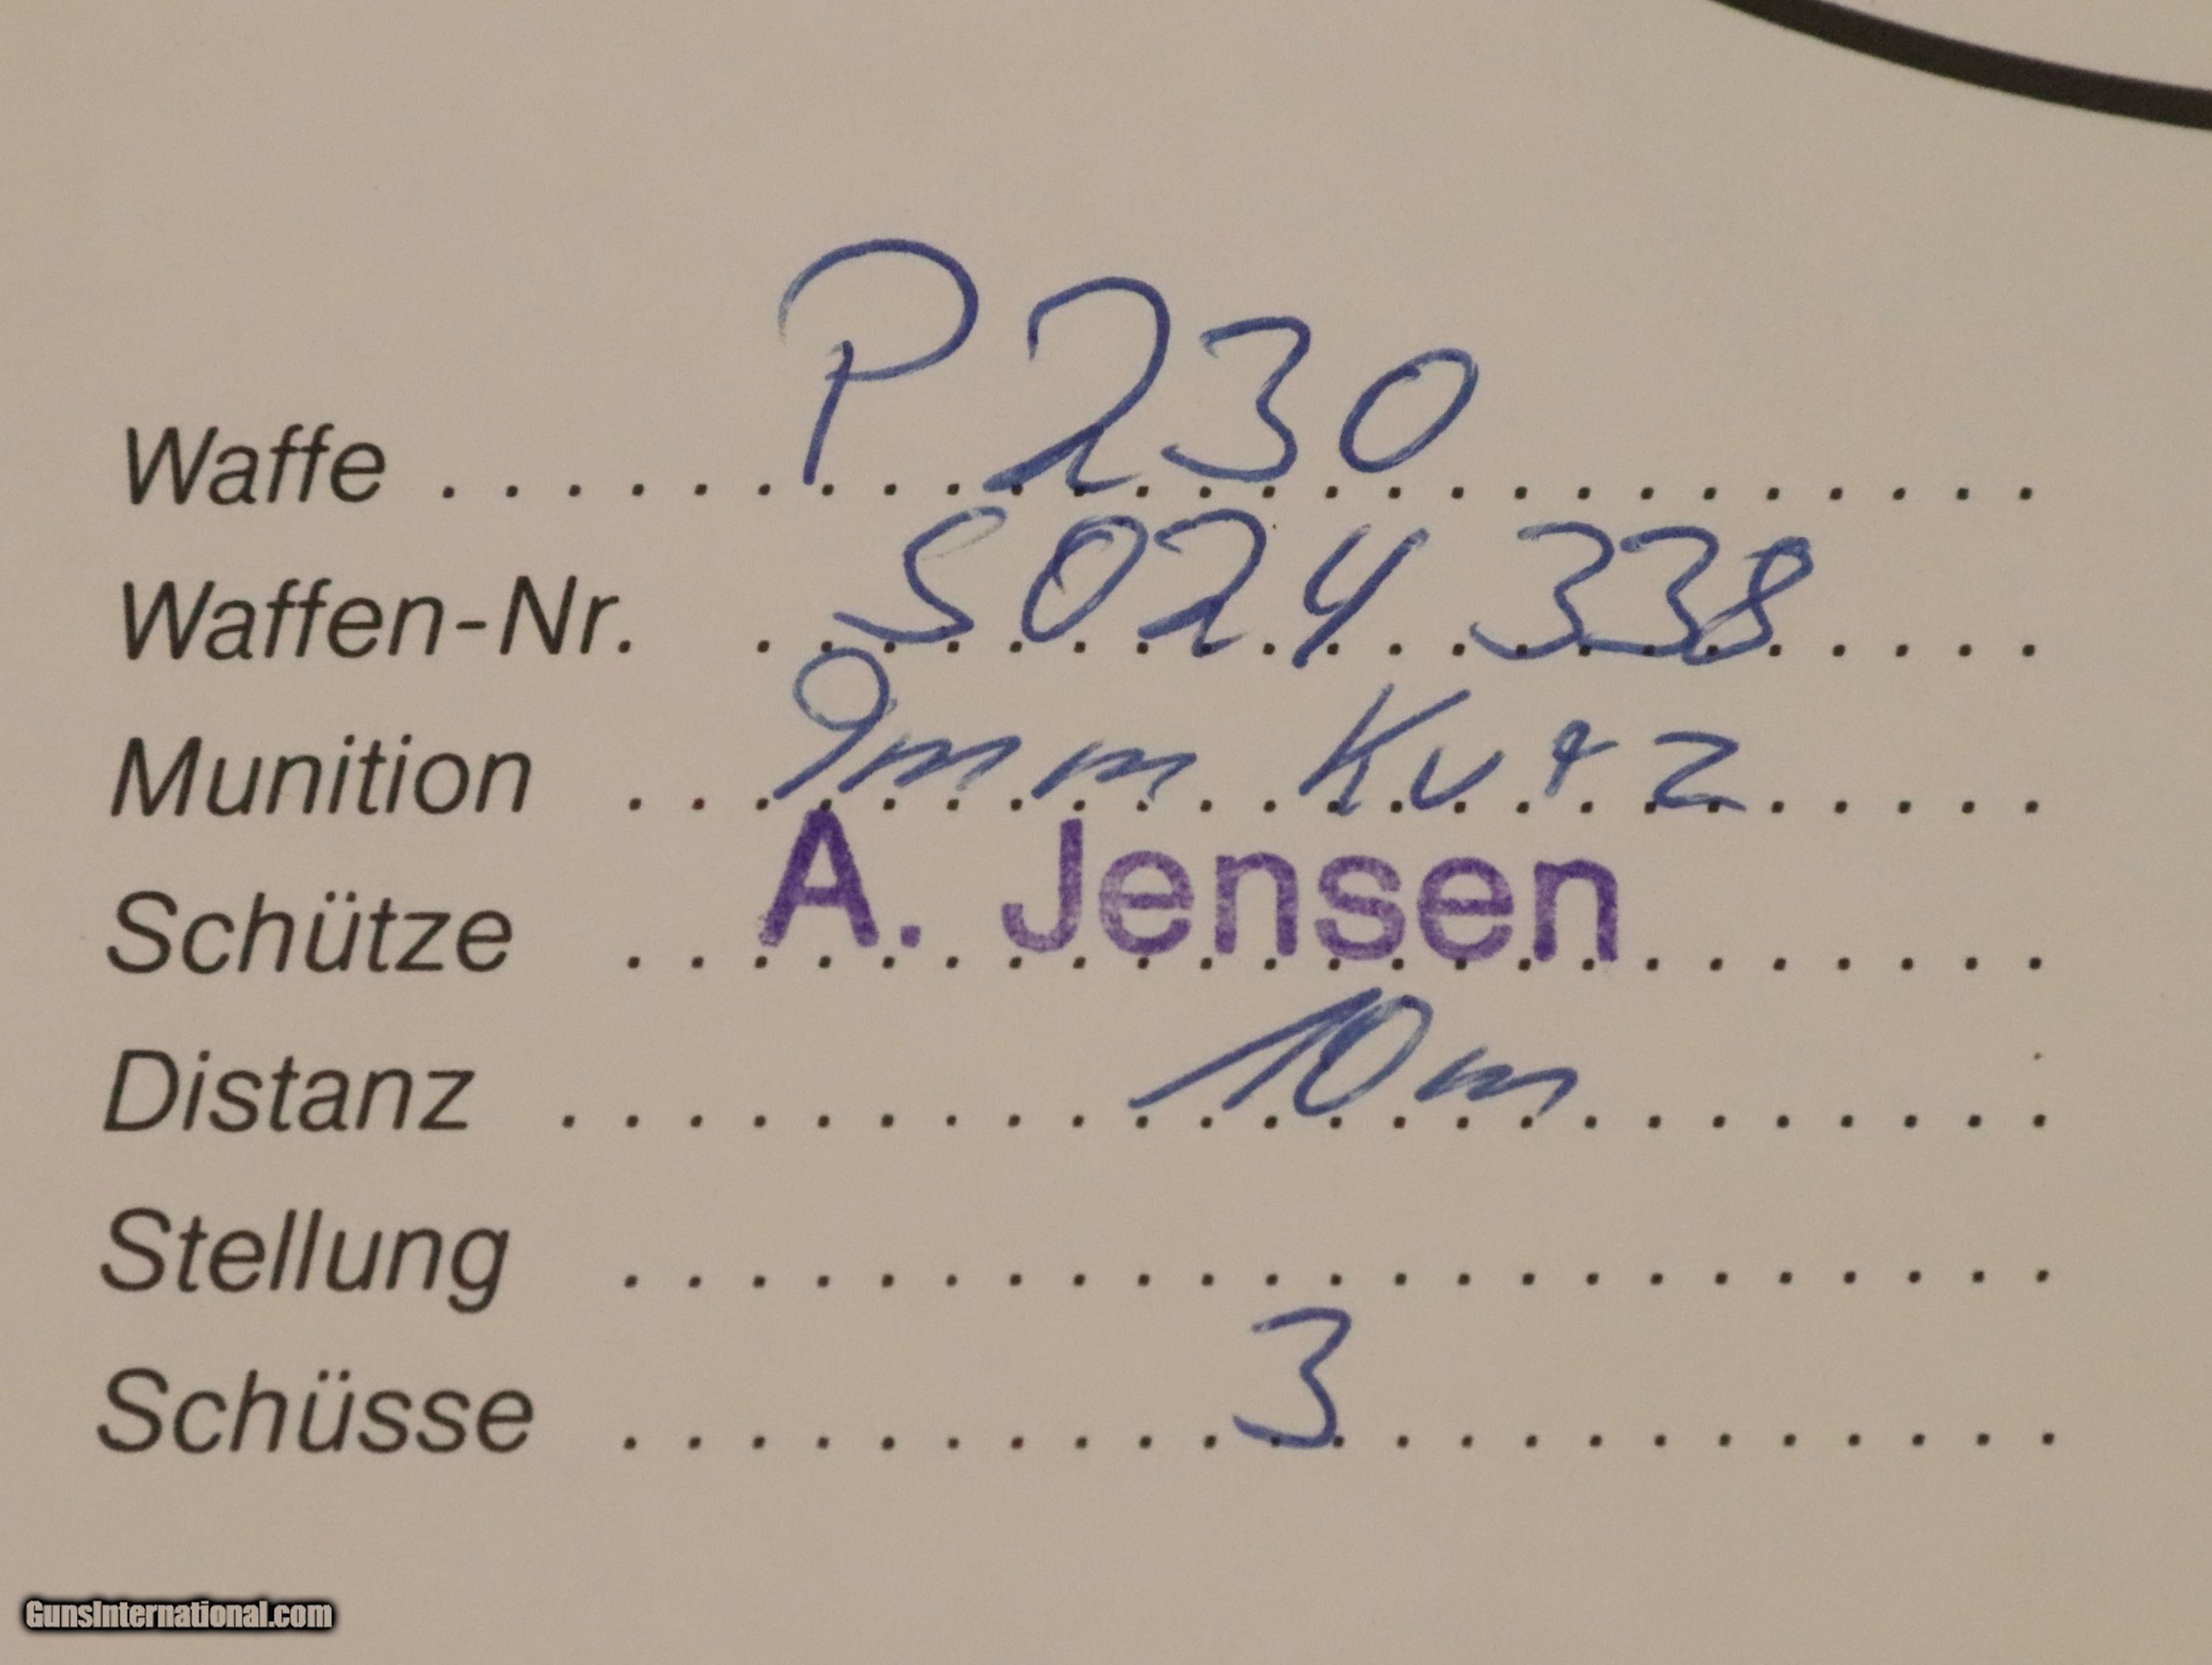 Waffe . . . . . . P 230 . . . . . . . . .
Waffen-Nr. . . S024 338 . . . .
Munition . . . 9mm Kurz . . . . .
Schütze . . . A. Jensen . . . . . . .
Distanz . . . . . . . . . 10m . . . . . . . .
Stellung . . . . . . . . . . . . . . . . . . . . . . .
Schüsse . . . . . . . . . . 3 . . . . . . . . . . .
GunsInternational.com